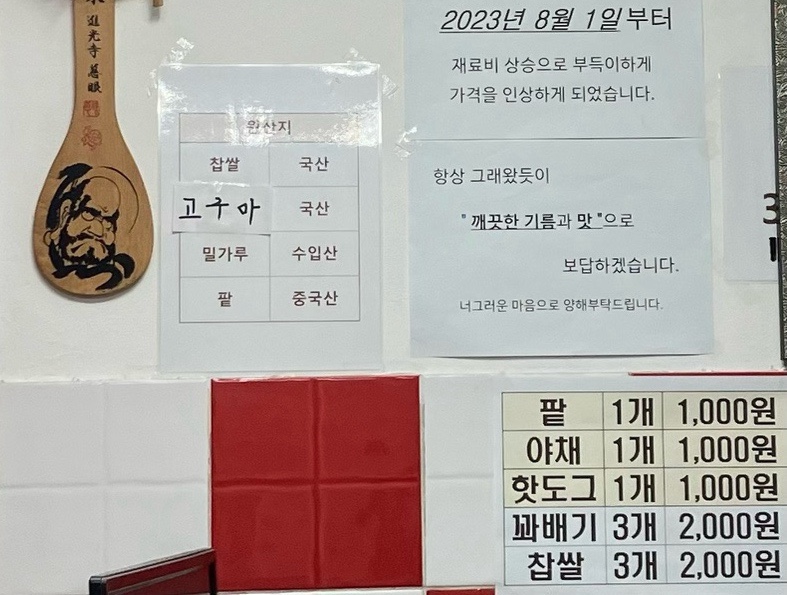 進光寺 慧眼
원산지
찹쌀 국산
고구마 국산
밀가루 수입산
팥 중국산
2023년 8월 1일부터
재료비 상승으로 부득이하게
가격을 인상하게 되었습니다.
항상 그래왔듯이
" 깨끗한 기름과 맛 "으로
보답하겠습니다.
너그러운 마음으로 양해부탁드립니다.
3
팥 1개 1,000원
야채 1개 1,000원
핫도그 1개 1,000원
꽈배기 3개 2,000원
찹쌀 3개 2,000원